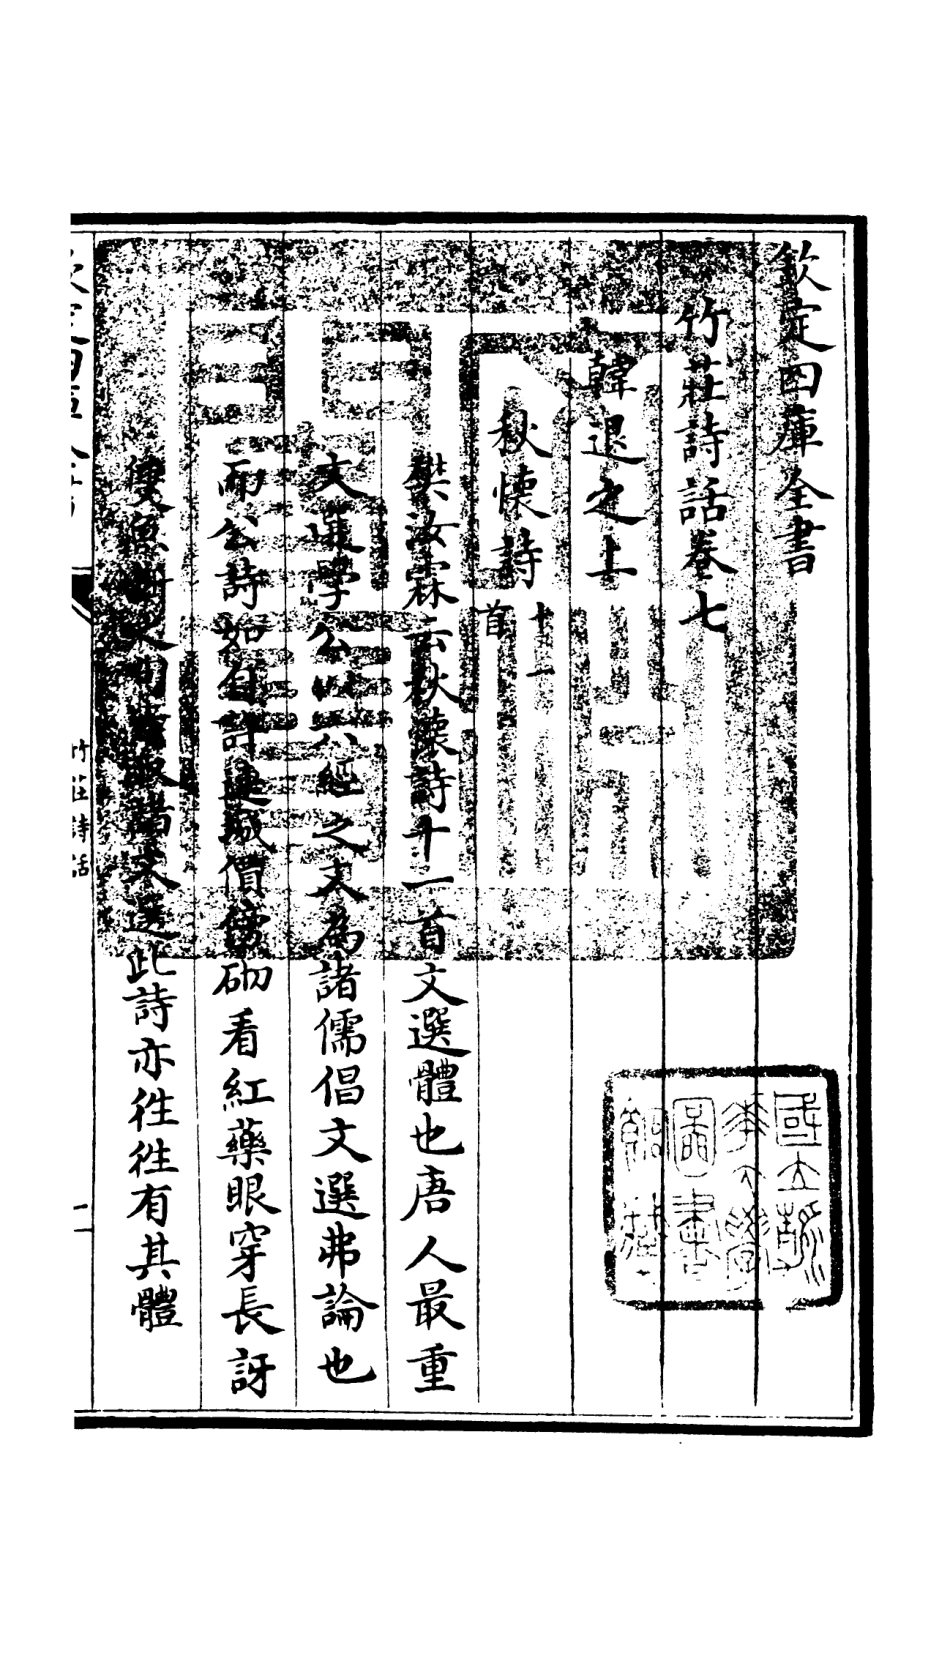 欽定四庫全書
竹莊詩話卷七
韓退之上
秋懷詩十一首
樊汝霖云秋懷詩十一首文選體也唐人最重
文選學公以六經之文為諸儒倡文選弗論也
而公詩如自許連城價傍砌看紅藥眼穿長訝
雙魚斷之句皆取諸文選此詩亦往往有其體
竹莊詩話
一